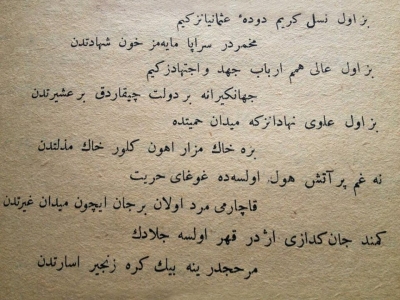 بز اول نسل كريم دودهٔ عثمانيانزكيم
مخمردر سراپا مايه‌مز خون شهادتدن
بز اول عالی همم ارباب جهد و اجتهادزكيم
جهانكيرانه بر دولت چيقاردق بر عشيرتدن
بز اول علوی نهادانزكه ميدان حميتده
بزه خاك مزار اهون كلور خاك مذلتدن
نه غم پر آتش هول اولسه‌ده غوغای حريت
قاچارمی مرد اولان بر جان ايچون ميدان غيرتدن
كمند جان كدازی اژدر قهر اولسه جلادك
مرجحدر ينه بيك كره زنجير اسارتدن